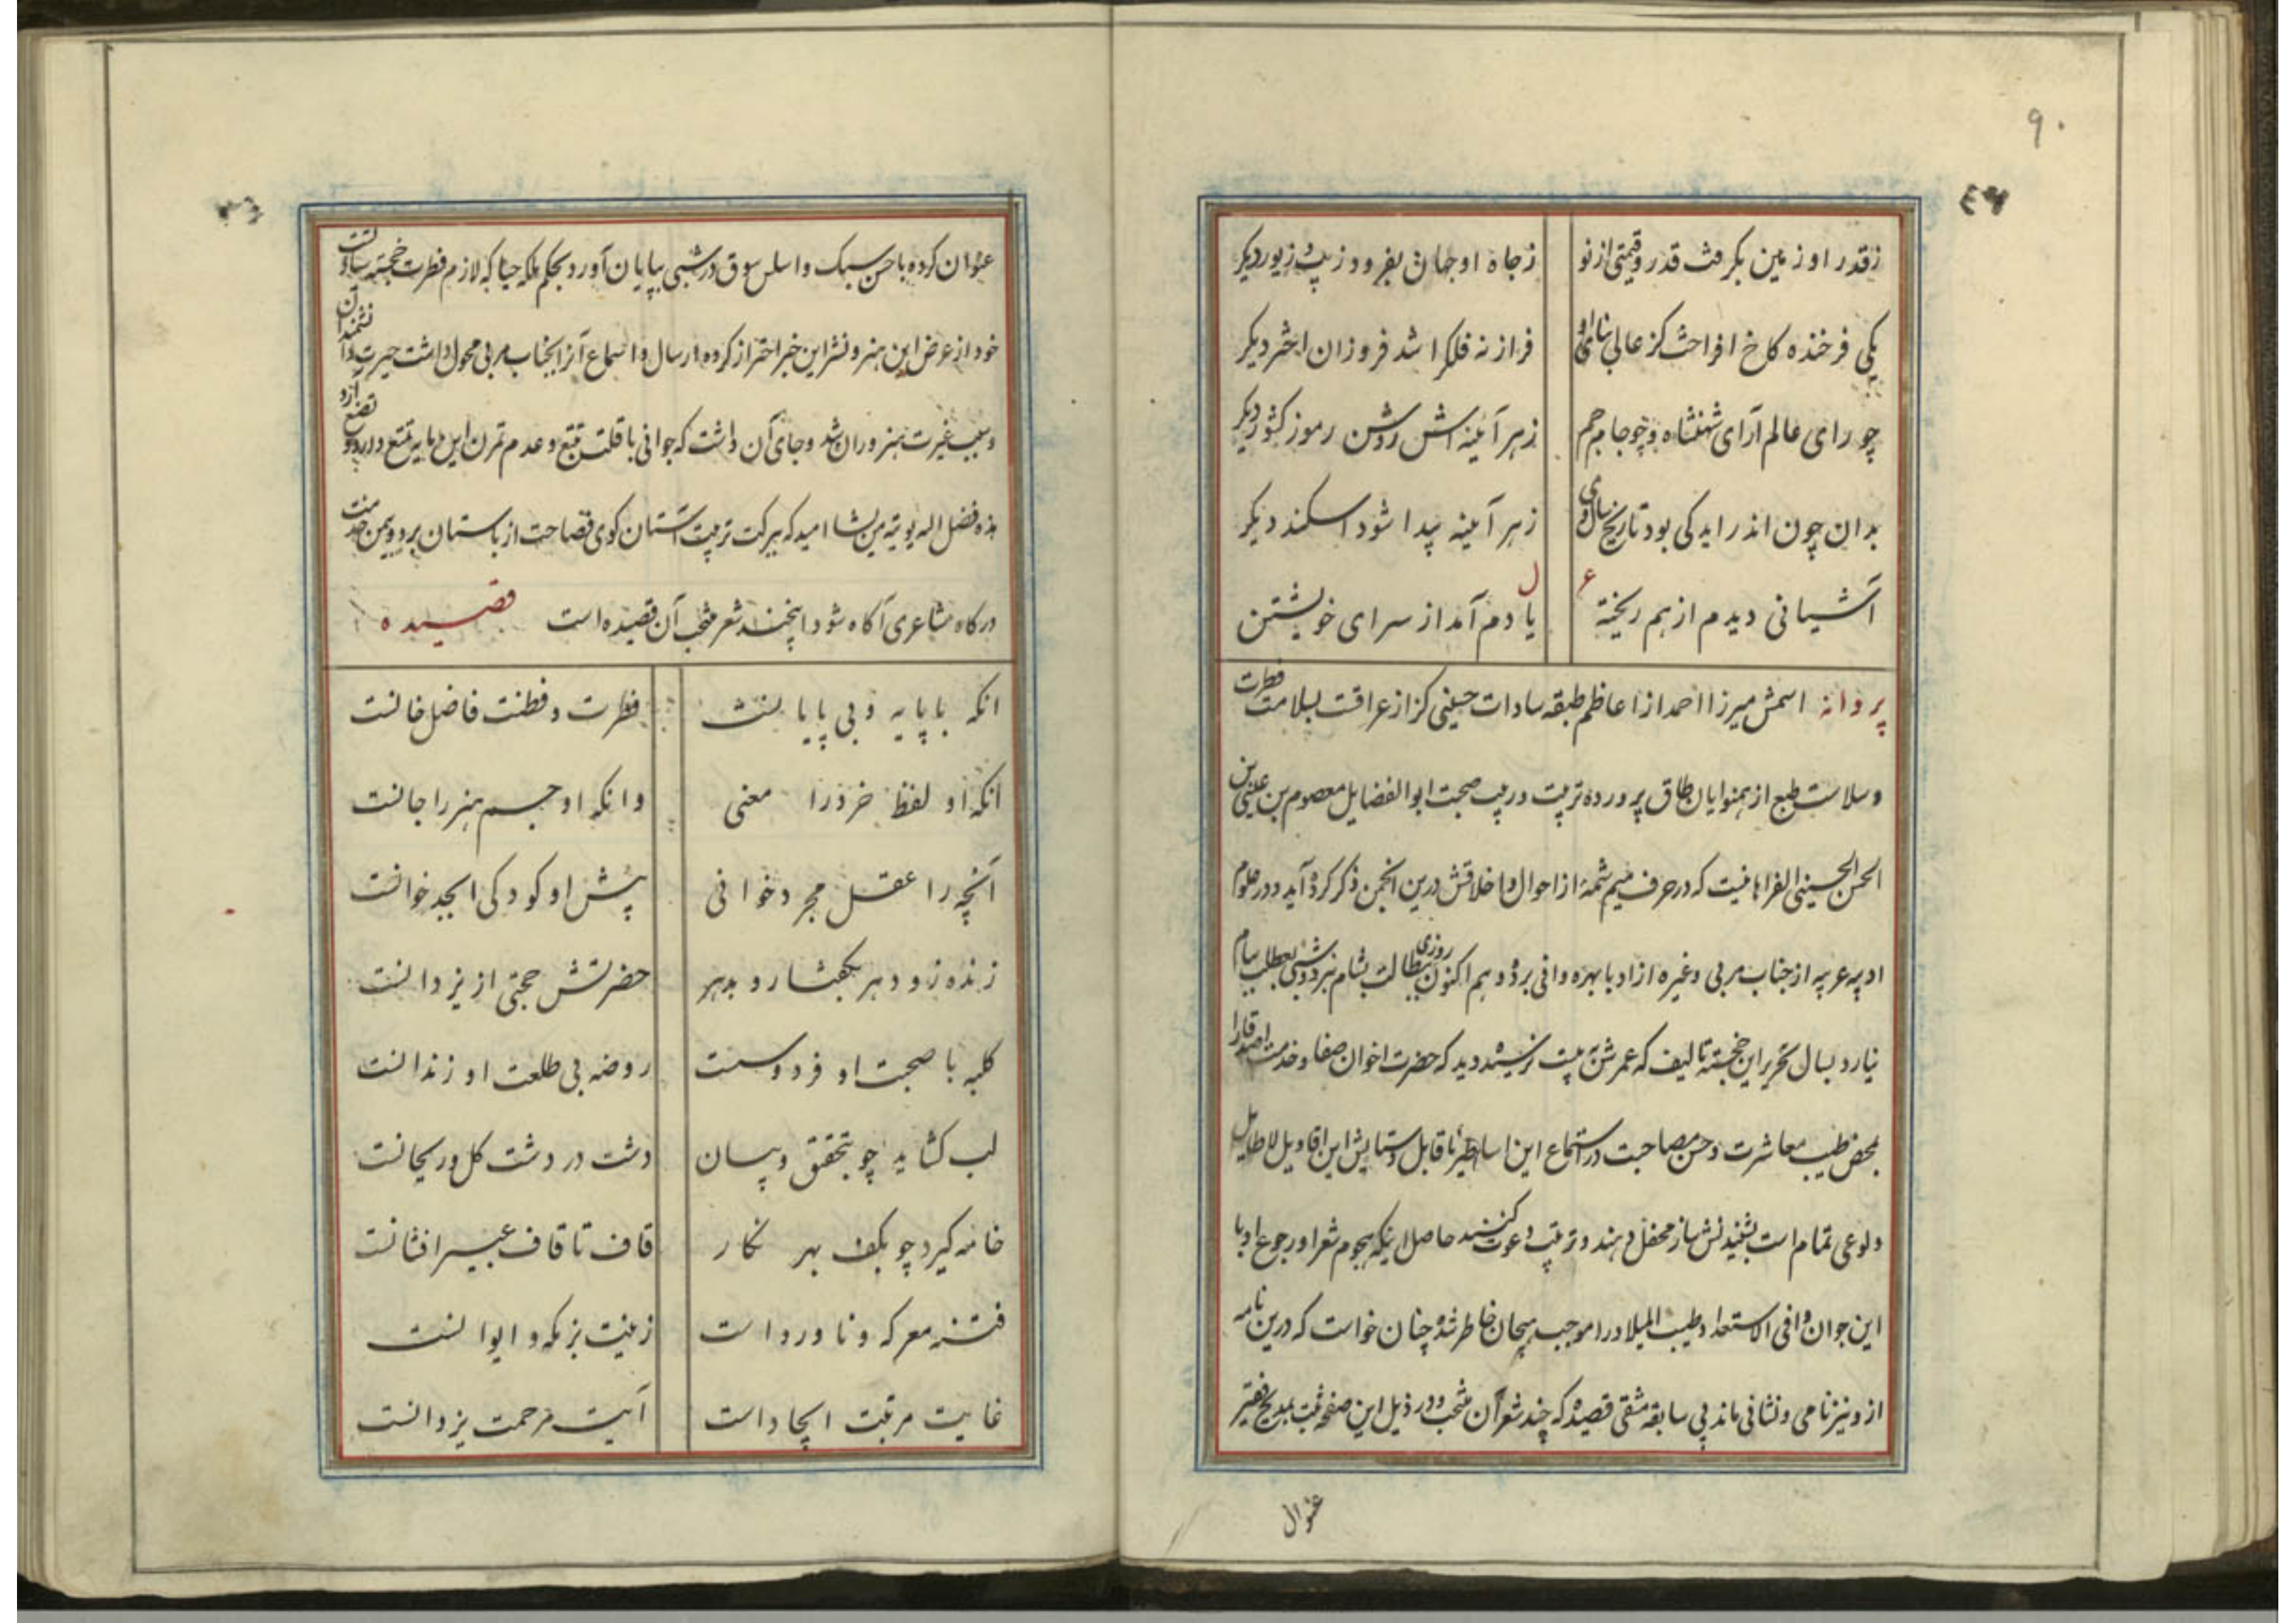 ۹۰
۴۶
ز قدر او زمین بگرفت قدر و قیمتی از نو ز جاه او جهان بفزود زیب و زیور دیگر
یکی فرخنده کاخ افراخت کز عالی بنای او فراز نه فلک را شد فروزان اختر دیگر
چو رای عالم آرای شهنشاه و چو جام جم ز هر آئینه اش روشن رموز کشور دیگر
بدان چون اندر اید کی بود تاریخ سال وی ز هر آئینه پیدا شود اسکندر دیگر
آشیانی دیدم از هم ریخته یادم آمد از سرای خویشتن
پروانه اسمش میرزا احمد از اعاظم طبقه سادات حسینی کزاز عراقست بسلامت فطرت
و سلاست طبع از همنوایان طاق پرورده تربیت و زیب صحبت ابوالفضایل معصوم بن عیسی بن
الحسن الحسینی الفراهانیست که در حرف میم شمهٔ از احوال و اخلاقش درین انجمن ذکر کرده آید و در علوم
ادبیه عربیه از جناب مربی و غیره از ادبا بهره وافی برده و هم اکنون روزی بیطالت بشام نبرد و شبی بعطلت ببام
نیارد بسال تحریر این خجسته تالیف که عمرش به بیست نرسیده دید که حضرت اخوان صفا و خدمت اصدقا را
بمحض طیب معاشرت و حسن مصاحبت در استماع این اساطیر ناقابل و ستایش این اقاویل لاطایل
ولوعی تمام است بشنیدنش ساز محفل دهند و ترتیب دعوت کنند حاصل اینکه هجوم شعرا و رجوع ادبا
این جوان وافی الاستعداد طیب المیلاد را موجب هیجان خاطر شده چنان خواست که درین نامه
از و نیز نامی و نشانی ماند بی سابقه مشقی قصیده که چند شعر آن منتخب و در ذیل این صفحه ثبت بمدیح فقیر
عنوان
عنوان کرده باحسن سبک و اسلس سوق در شبی بپایان آورد بحکم ملکه حیا که لازم فطرت خجسته ساداتست
خود از عرض این هنر و نشر این خبر احتراز کرده ارسال و اسماع آنرا بجناب مربی محول داشت حیرت دانشمندان
و سبب غیرت هنروران شد و جای آن داشت که جوانی با قلت تتبع و عدم تمرن این مایه تمتع دارد
هذه فضل اله یوتیه من یشا امید که ببرکت تربیت آستان گوی فصاحت از باستان برد و بیمن خدمت
درگاه مشاعری آگاه شود اینچند شعر منتخب آن قصیده است قصیده
انکه با پایه و بی پایانست فطرت و فطنت فاضل خانست
انکه او لفظ خرد را معنی وانکه او جسم هنر را جانست
آنچه را عقل مجرد خوانی پیش او کودکی ابجد خوانست
زنده زو دهر بگفتار و بدهر حضرتش حجتی از یزدانست
کلبه با صحبت او فردوسست روضه بی طلعت او زندانست
لب گشاید چو بتحقیق و بیان دشت در دشت گل و ریحانست
خامه گیرد چو بکف بهر نگار قاف تا قاف عبیر افشانست
فتنه معرکه و ناورد است زینت بزمگه و ایوانست
غایت مرتبت ایجاد است آیت مرحمت یزدانست